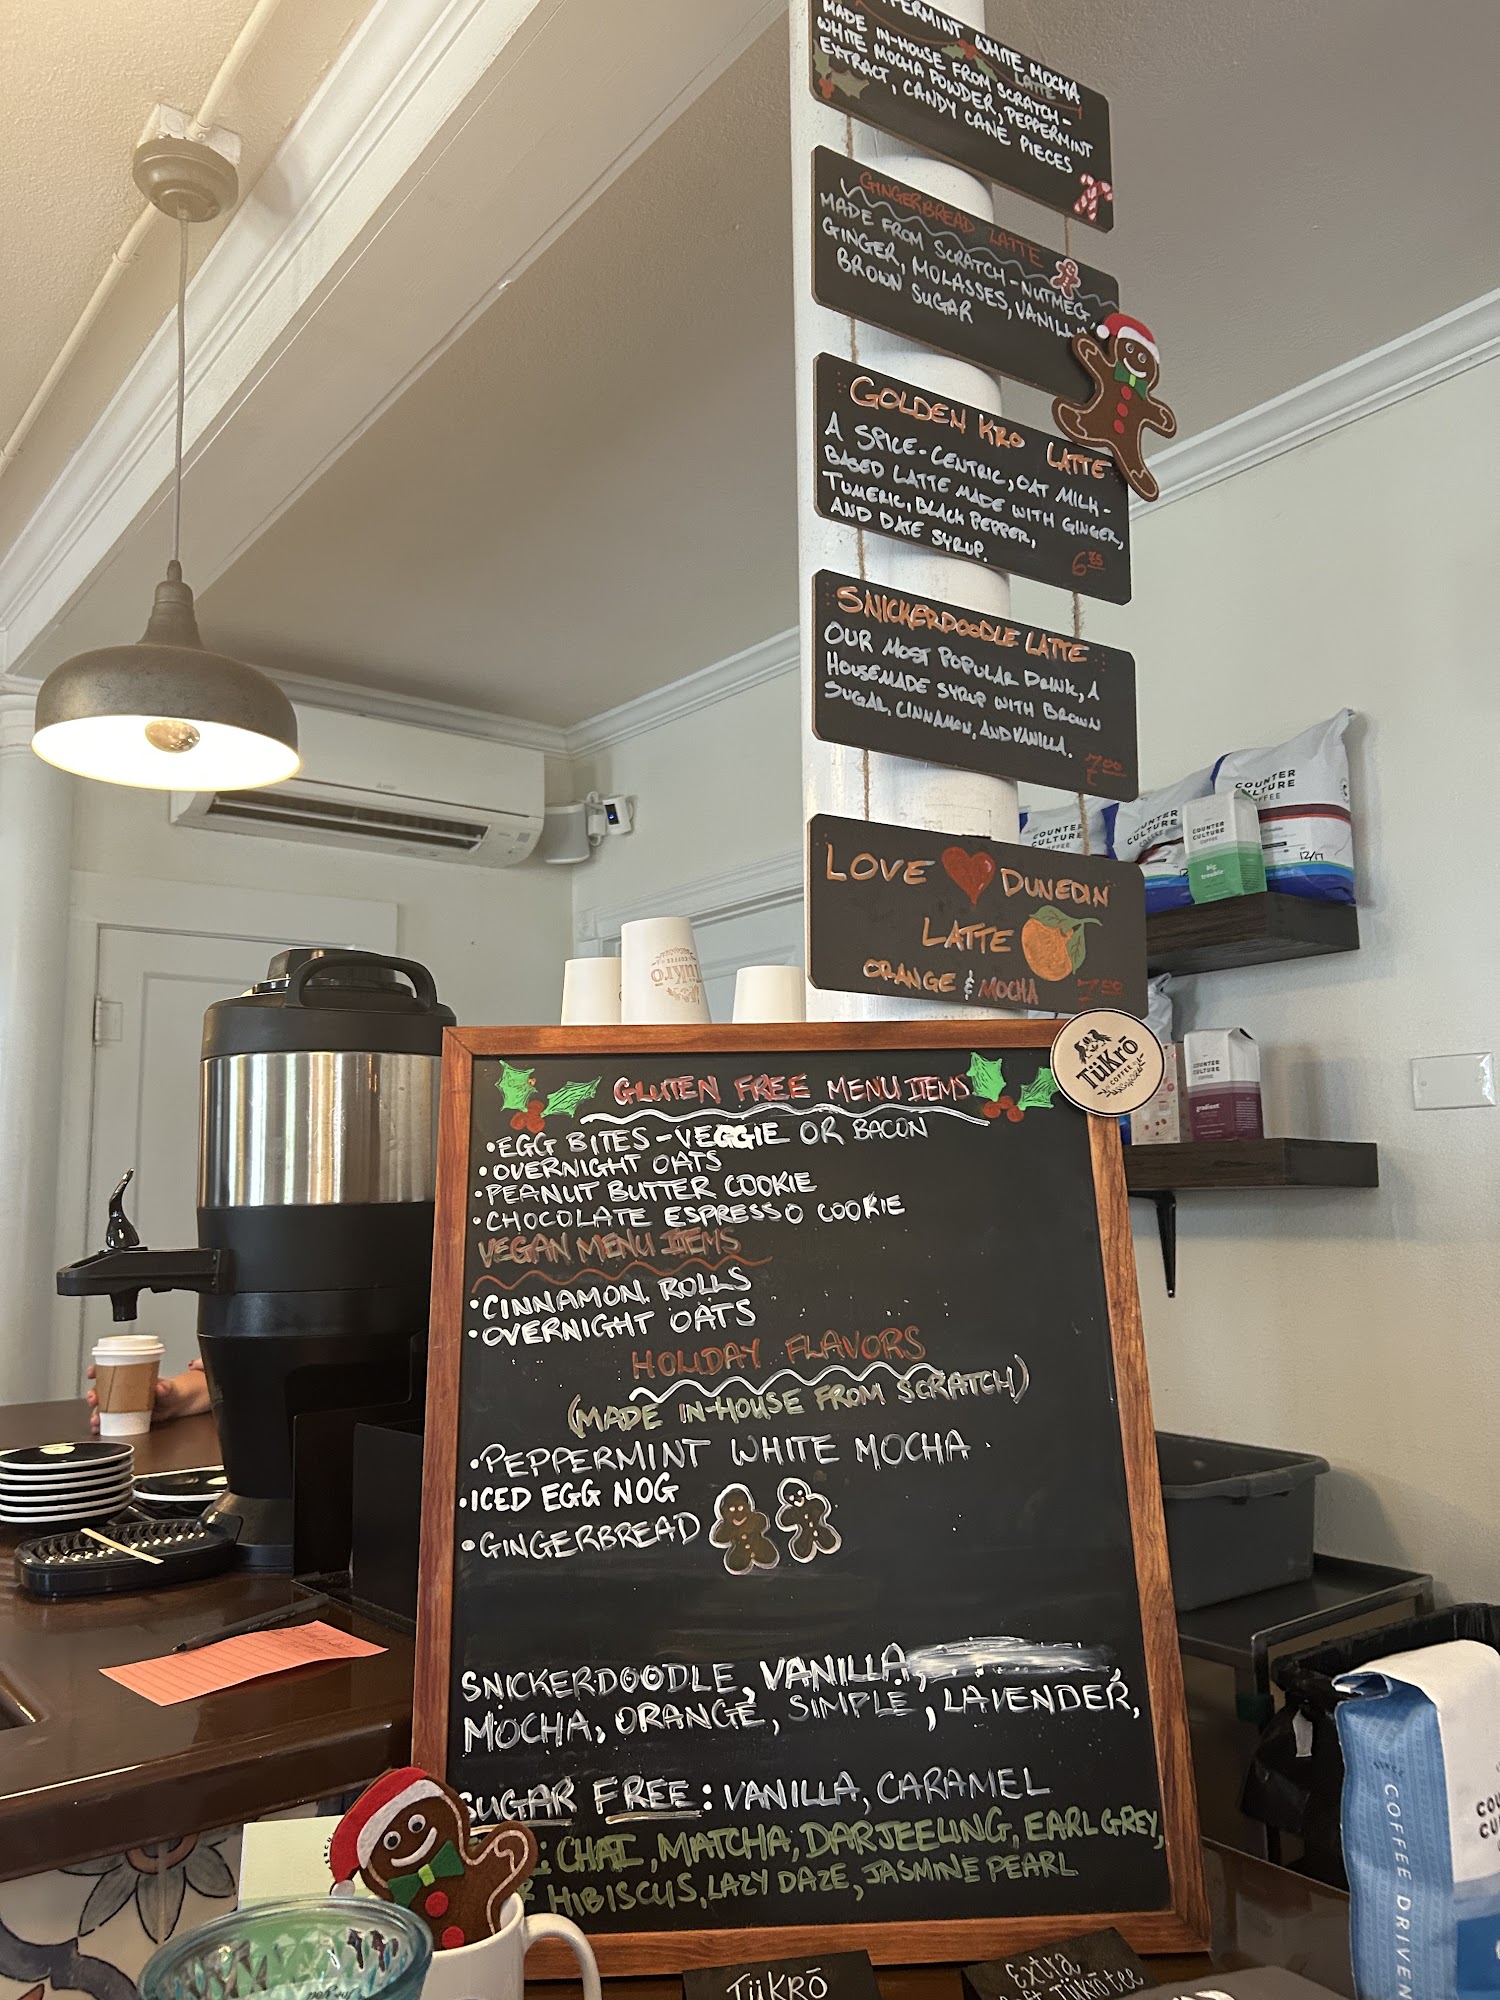 WHITE MOCHA
LATTE
MADE IN-HOUSE FROM SCRATCH-
WHITE MOCHA POWDER, PEPPERMINT
EXTRACT, CANDY CANE PIECES
GINGERBREAD LATTE
MADE FROM SCRATCH - NUTMEG,
GINGER, MOLASSES, VANILLA
BROWN SUGAR
GOLDEN KRO LATTE
A SPICE-CENTRIC, OAT MILK-
BASED LATTE MADE WITH GINGER,
TUMERIC, BLACK PEPPER,
AND DATE SYRUP.
6 75
SNICKERDOODLE LATTE
OUR MOST POPULAR DRINK, A
HOUSEMADE SYRUP WITH BROWN
SUGAR, CINNAMON, AND VANILLA.
7 00
LOVE DUNEDIN
LATTE
ORANGE & MOCHA 7 00
COUNTER
CULTURE
COFFEE
COUNTER
CULTURE
COUNTER
CULTURE
COFFEE
big
trouble
COUNTER
CULTURE
12/17
TüKrō
COFFEE
TüKrō
COUNTER
CULTURE
gradient
GLUTEN FREE MENU ITEMS
•EGG BITES-VEGGIE OR BACON
•OVERNIGHT OATS
•PEANUT BUTTER COOKIE
•CHOCOLATE ESPRESSO COOKIE
VEGAN MENU ITEMS
•CINNAMON ROLLS
•OVERNIGHT OATS
HOLIDAY FLAVORS
(MADE IN-HOUSE FROM SCRATCH)
•PEPPERMINT WHITE MOCHA
•ICED EGG NOG
•GINGERBREAD
SNICKERDOODLE, VANILLA,
MOCHA, ORANGE, SIMPLE, LAVENDER,
SUGAR FREE: VANILLA, CARAMEL
: CHAI, MATCHA, DARJEELING, EARL GREY,
HIBISCUS, LAZY DAZE, JASMINE PEARL
TüKRō
Extra
TüKrō tee
SINCE
COFFEE DRIVEN